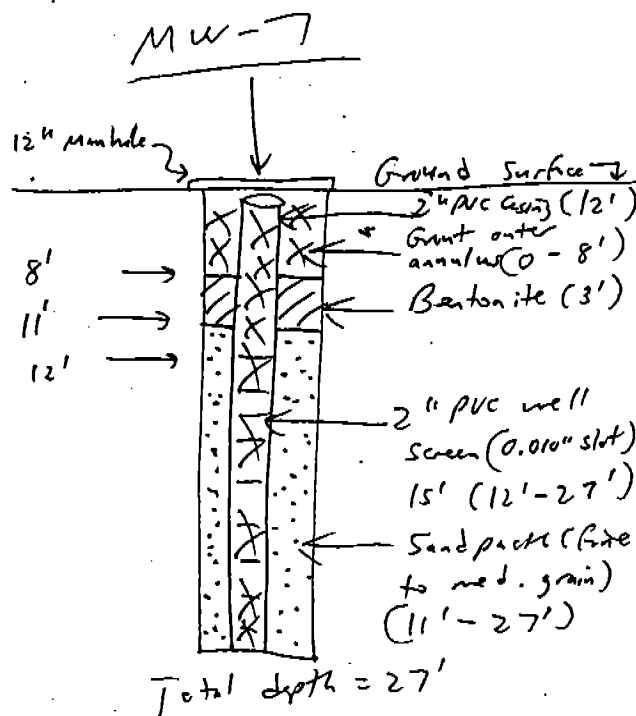 MW-7
12" Manhole
Ground Surface
2" PVC Casing (12')
Grout outer
annulus (0-8')
8'
Bentonite (3')
11'
12'
2" PVC well
screen (0.010" slot)
15' (12'-27')
Sand pack (fine
to med. grain)
(11'-27')
Total depth = 27'